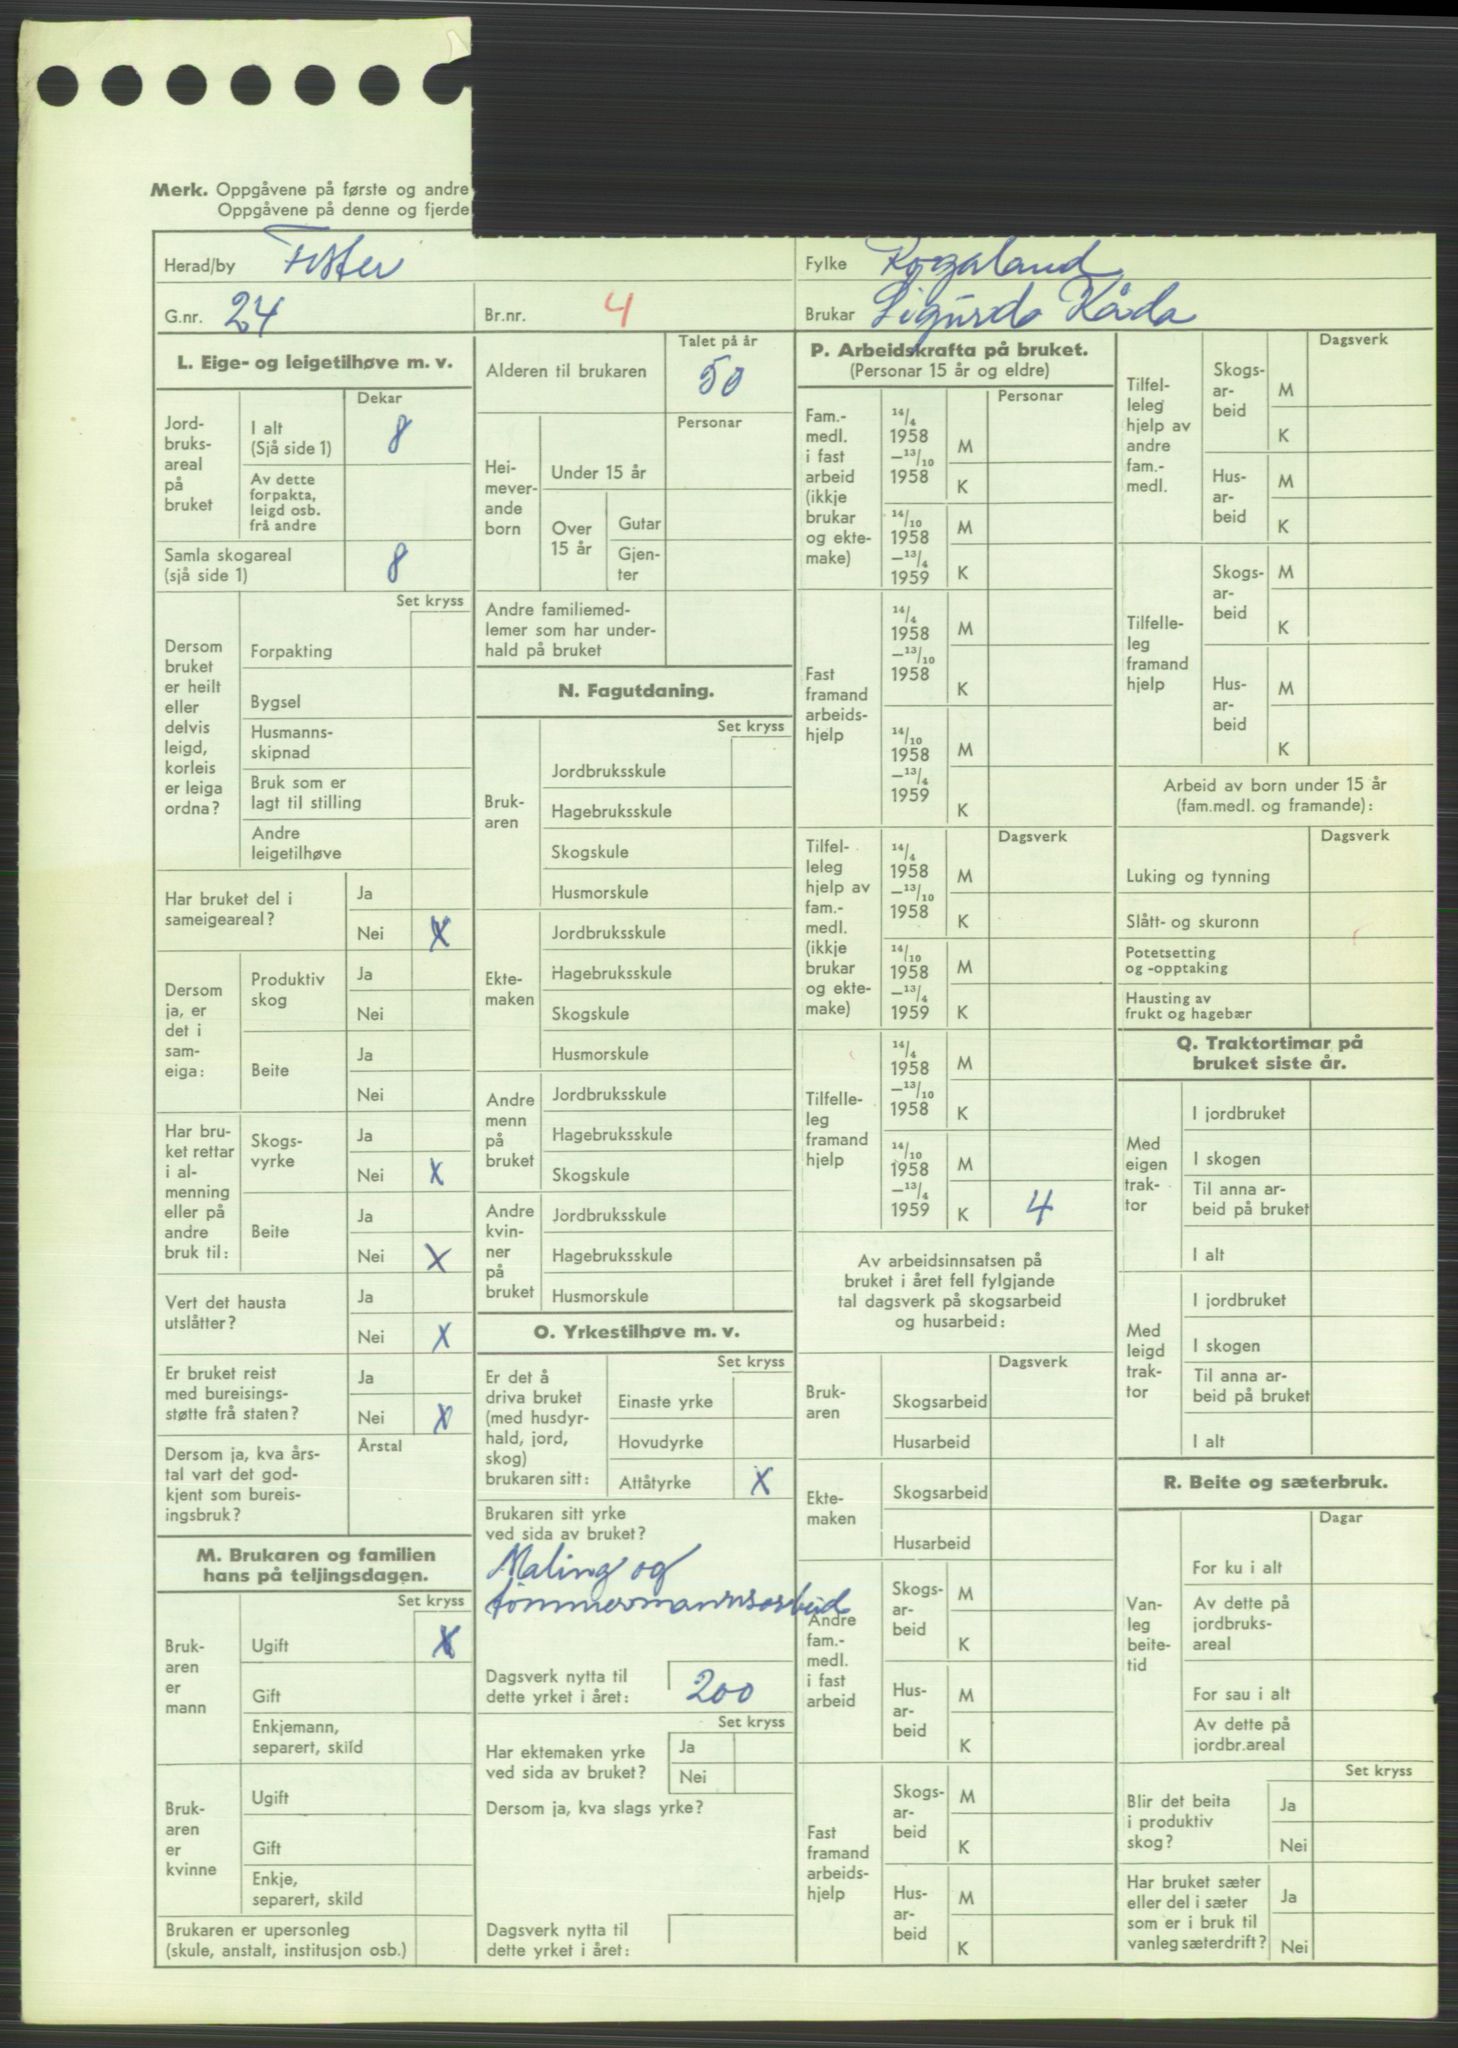 Merk. Oppgåvene på første og andre
Oppgåvene på denne og fjerde
Herad/by Fister
Fylke Rogaland
G.nr. 24 Br.nr. 4
Brukar Sigurd Kåda
L. Eige- og leigetilhøve m. v.
Dekar
Jord-
bruks-
areal
på
bruket
I alt
(Sjå side 1) 8
Av dette
forpakta,
leigd osb.
frå andre
Samla skogareal
(sjå side 1) 8
Set kryss
Dersom
bruket
er heilt
eller
delvis
leigd,
korleis
er leiga
ordna?
Forpakting
Bygsel
Husmanns-
skipnad
Bruk som er
lagt til stilling
Andre
leigetilhøve
Har bruket del i
sameigeareal?
Ja
Nei X
Dersom
ja, er
det i
sam-
eiga:
Produktiv
skog
Ja
Nei
Beite
Ja
Nei
Har bru-
ket rettar
i al-
menning
eller på
andre
bruk til:
Skogs-
vyrke
Ja
Nei X
Beite
Ja
Nei X
Vert det hausta
utslåtter?
Ja
Nei X
Er bruket reist
med bureisings-
støtte frå staten?
Ja
Nei X
Dersom ja, kva års-
tal vart det god-
kjent som bureis-
ingsbruk?
Årstal
M. Brukaren og familien
hans på teljingsdagen.
Set kryss
Bruk-
aren
er
mann
Ugift X
Gift
Enkjemann,
separert, skild
Bruk-
aren
er
kvinne
Ugift
Gift
Enkje,
separert, skild
Brukaren er upersonleg
(skule, anstalt, institusjon osb.)
Talet på år
Alderen til brukaren 50
Personar
Hei-
mever-
ande
born
Under 15 år
Over
15 år
Gutar
Gjen-
ter
Andre familiemed-
lemer som har under-
hald på bruket
N. Fagutdaning.
Set kryss
Bruk-
aren
Jordbruksskule
Hagebruksskule
Skogskule
Husmorskule
Ekte-
maken
Jordbruksskule
Hagebruksskule
Skogskule
Husmorskule
Andre
menn
på
bruket
Jordbruksskule
Hagebruksskule
Skogskule
Andre
kvin-
ner
på
bruket
Jordbruksskule
Hagebruksskule
Husmorskule
O. Yrkestilhøve m. v.
Set kryss
Er det å
driva bruket
(med husdyr-
hald, jord,
skog)
brukaren sitt:
Einaste yrke
Hovudyrke
Attåtyrke X
Brukaren sitt yrke
ved sida av bruket?
Maling og
tømmermannsarbeid
Dagsverk nytta til
dette yrket i året: 200
Set kryss
Har ektemaken yrke
ved sida av bruket?
Ja
Nei
Dersom ja, kva slags yrke?
Dagsverk nytta til
dette yrket i året:
P. Arbeidskrafta på bruket.
(Personar 15 år og eldre)
Personar
Fam.-
medl.
i fast
arbeid
(ikkje
brukar
og ekte-
make)
14/4
1958
—13/10
1958
M
K
14/10
1958
—13/4
1959
M
K
Fast
framand
arbeids-
hjelp
14/4
1958
—13/10
1958
M
K
14/10
1958
—13/4
1959
M
K
Dagsverk
Tilfel-
leleg
hjelp av
fam.-
medl.
(ikkje
brukar
og ekte-
make)
14/4
1958
—13/10
1958
M
K
14/10
1958
—13/4
1959
M
K
Tilfelle-
leg
framand
hjelp
14/4
1958
—13/10
1958
M
K
14/10
1958
—13/4
1959
M
K 4
Av arbeidsinnsatsen på
bruket i året fell fylgjande
tal dagsverk på skogsarbeid
og husarbeid:
Dagsverk
Bruk-
aren
Skogsarbeid
Husarbeid
Ekte-
maken
Skogsarbeid
Husarbeid
Andre
fam.-
medl.
i fast
arbeid
Skogs-
ar-
beid
M
K
Hus-
ar-
beid
M
K
Fast
framand
arbeids-
hjelp
Skogs-
ar-
beid
M
K
Hus-
ar-
beid
M
K
Dagsverk
Tilfel-
leleg
hjelp av
andre
fam.-
medl.
Skogs-
ar-
beid
M
K
Hus-
ar-
beid
M
K
Tilfelle-
leg
framand
hjelp
Skogs-
ar-
beid
M
K
Hus-
ar-
beid
M
K
Arbeid av born under 15 år
(fam.medl. og framande):
Dagsverk
Luking og tynning
Slått- og skuronn
Potetsetting
og -opptaking
Hausting av
frukt og hagebær
Q. Traktortimar på
bruket siste år.
Med
eigen
trak-
tor
I jordbruket
I skogen
Til anna ar-
beid på bruket
I alt
Med
leigd
trak-
tor
I jordbruket
I skogen
Til anna ar-
beid på bruket
I alt
R. Beite og sæterbruk.
Dagar
Van-
leg
beite-
tid
For ku i alt
Av dette på
jordbruks-
areal
For sau i alt
Av dette på
jordbr.areal
Set kryss
Blir det beita
i produktiv
skog?
Ja
Nei
Har bruket sæter
eller del i sæter
som er i bruk til
vanleg sæterdrift?
Ja
Nei